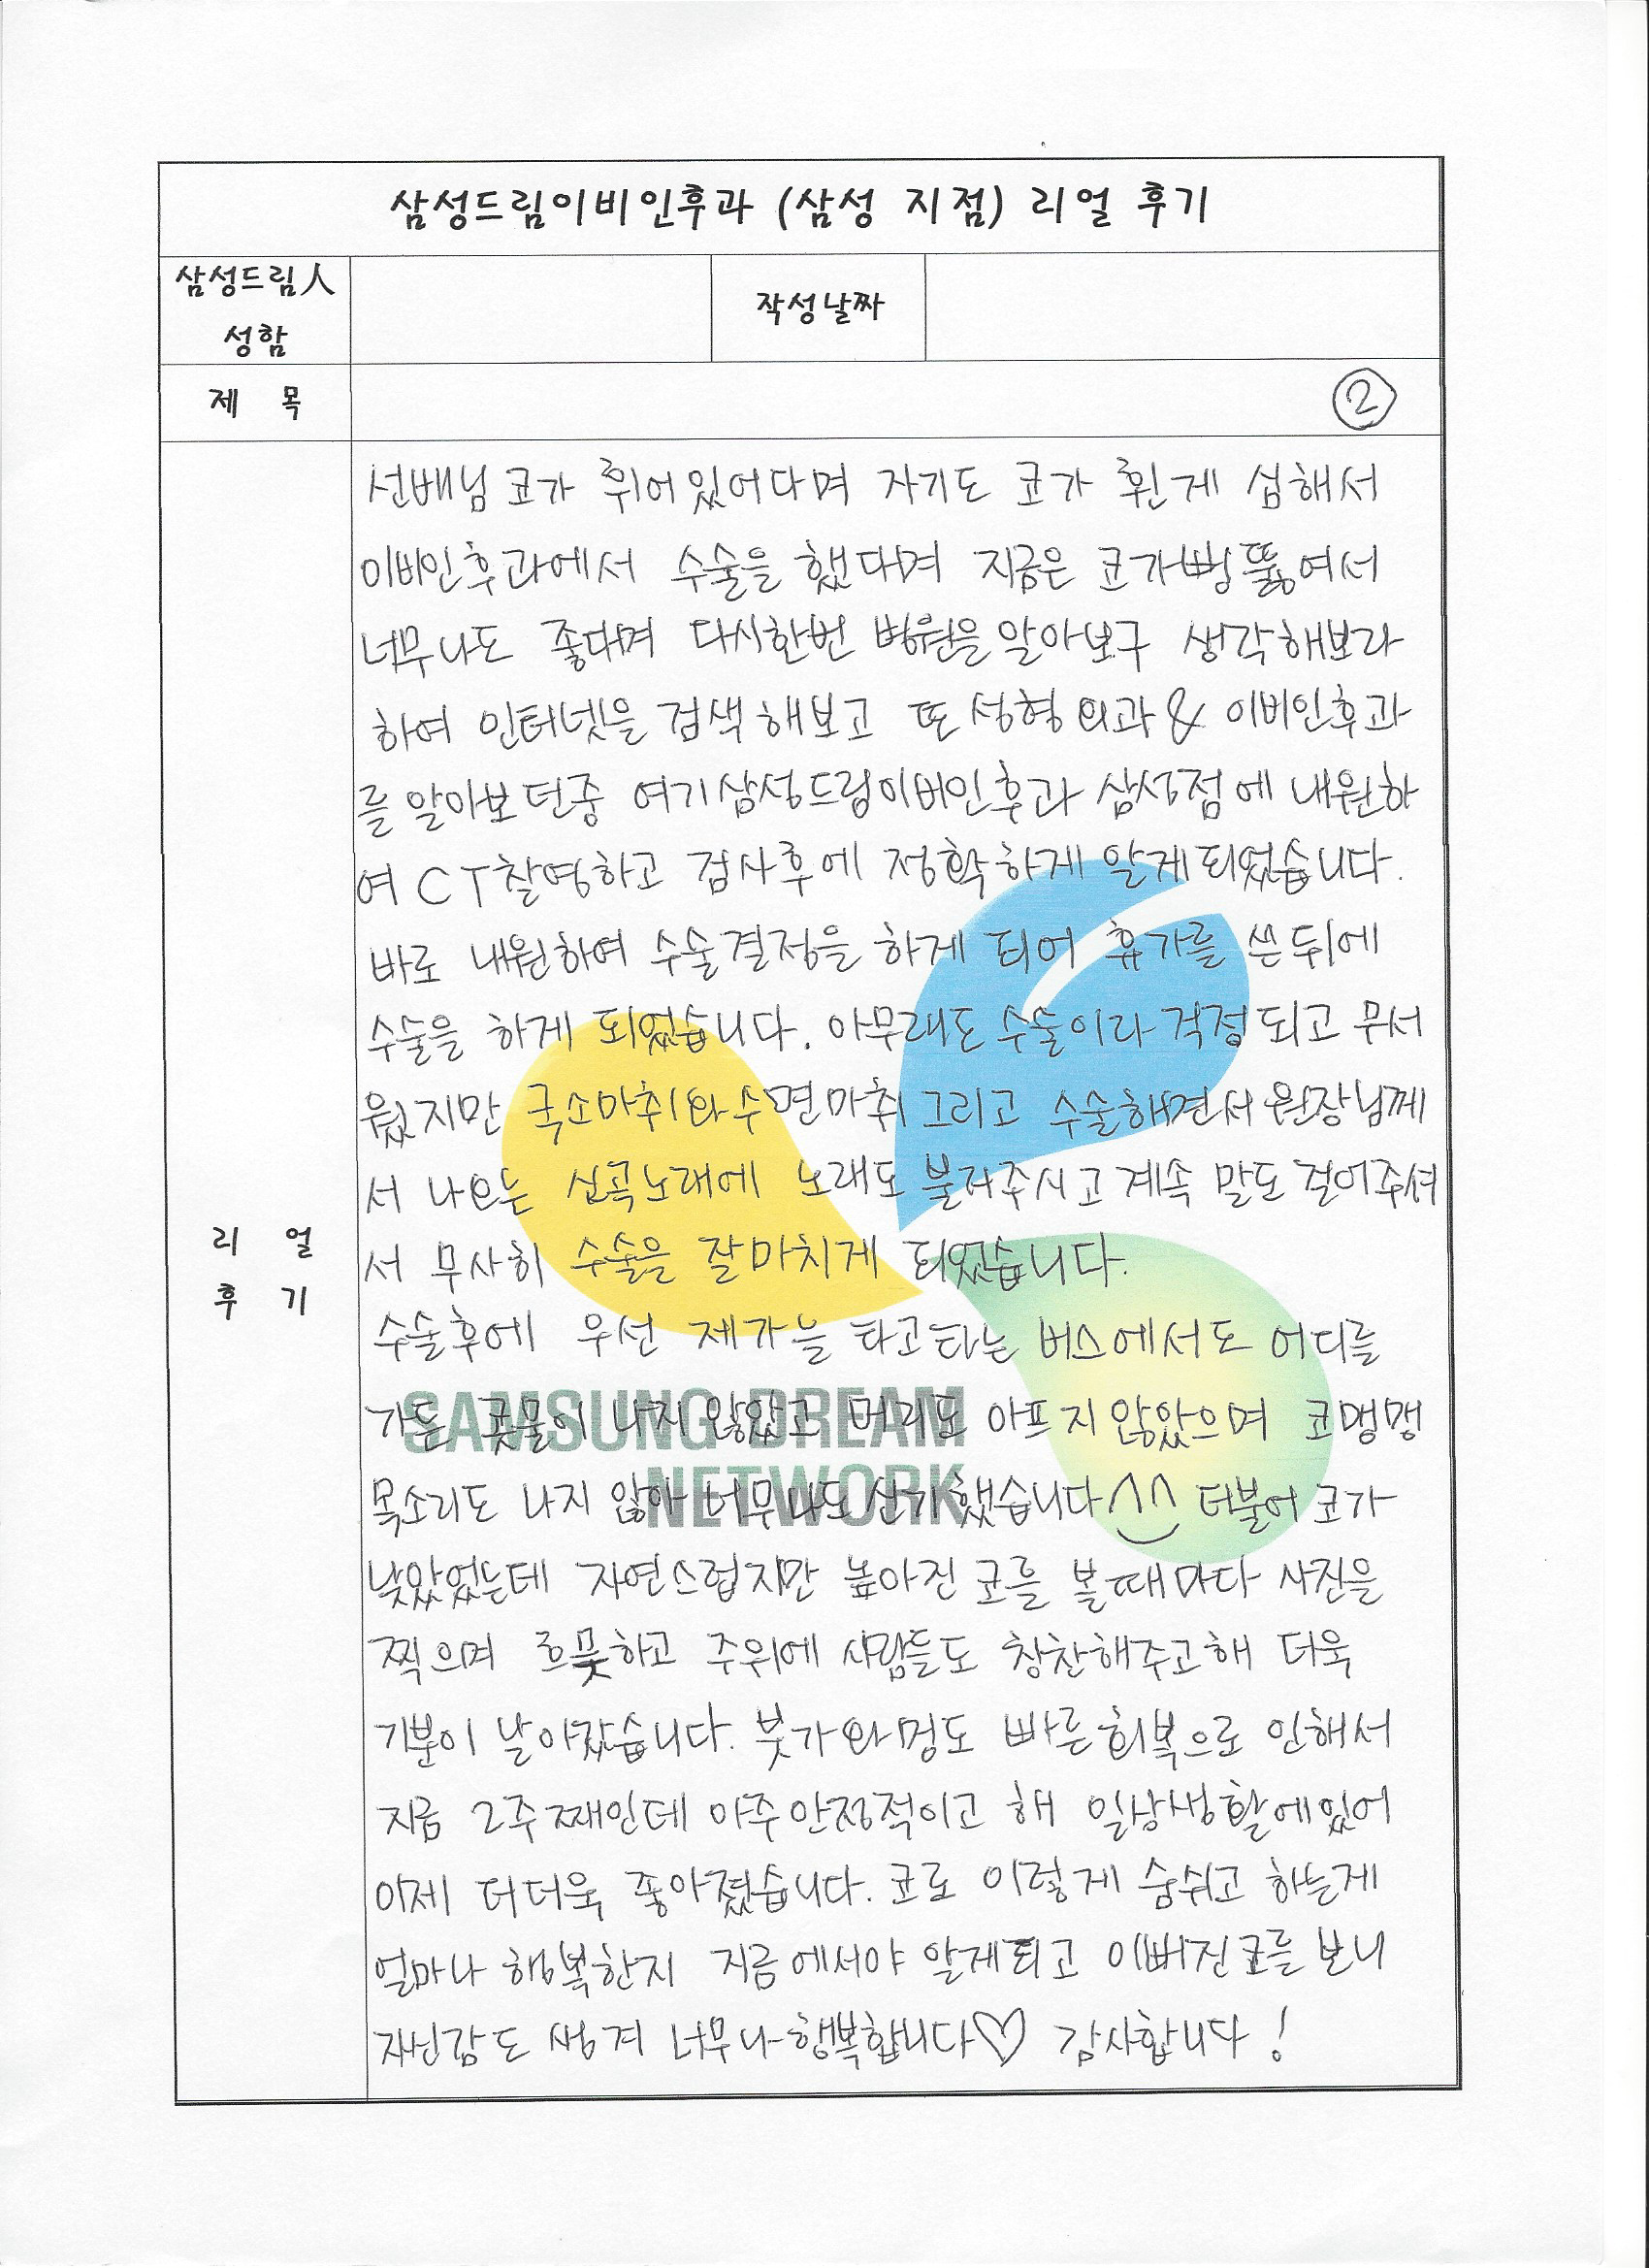 삼성드림이비인후과 (삼성 지점) 리얼 후기
삼성드림人
성함
작성날짜
제 목
②
선배님 코가 휘어있어다며 자기도 코가 휜게 심해서
이비인후과에서 수술을 했다며 지금은 코가 뻥 뚫여서
너무나도 좋다며 다시한번 병원을 알아보구 생각해보라
하여 인터넷을 검색해보고 또 성형외과 & 이비인후과
를 알아보던중 여기 삼성드림이비인후과 삼성점에 내원하
여 CT촬영하고 검사후에 정확하게 알게되었습니다.
바로 내원하여 수술결정을 하게 되어 휴가를 쓴 뒤에
수술을 하게 되었습니다. 아무래도 수술이라 걱정되고 무서
웠지만 국소마취와 수면마취 그리고 수술하면서 원장님께
서 나오는 신곡노래에 노래도 불러주시고 계속 말도 걸어주셔
서 무사히 수술을 잘마치게 되었습니다.
수술후에 우선 제가늘 타고다는 버스에서도 어디를
가든 콧물이 나지 않았고 머리도 아프지 않았으며 코맹맹
목소리도 나지 않아 너무나도 신기했습니다^^ 더불어 코가
낮았었는데 자연스럽지만 높아진 코를 볼때마다 사진을
찍으며 흐뭇하고 주위에 사람들도 칭찬해주고해 더욱
기분이 날아갔습니다. 붓기와 멍도 빠른 회복으로 인해서
지금 2주째인데 아주 안정적이고 해 일상생활에있어
이제 더더욱 좋아졌습니다. 코로 이렇게 숨쉬고 하는게
얼마나 행복한지 지금에서야 알게되고 이뻐진코를 보니
자신감도 생겨 너무나 행복합니다♡ 감사합니다!
리 얼
후 기
SAMSUNG DREAM
NETWORK